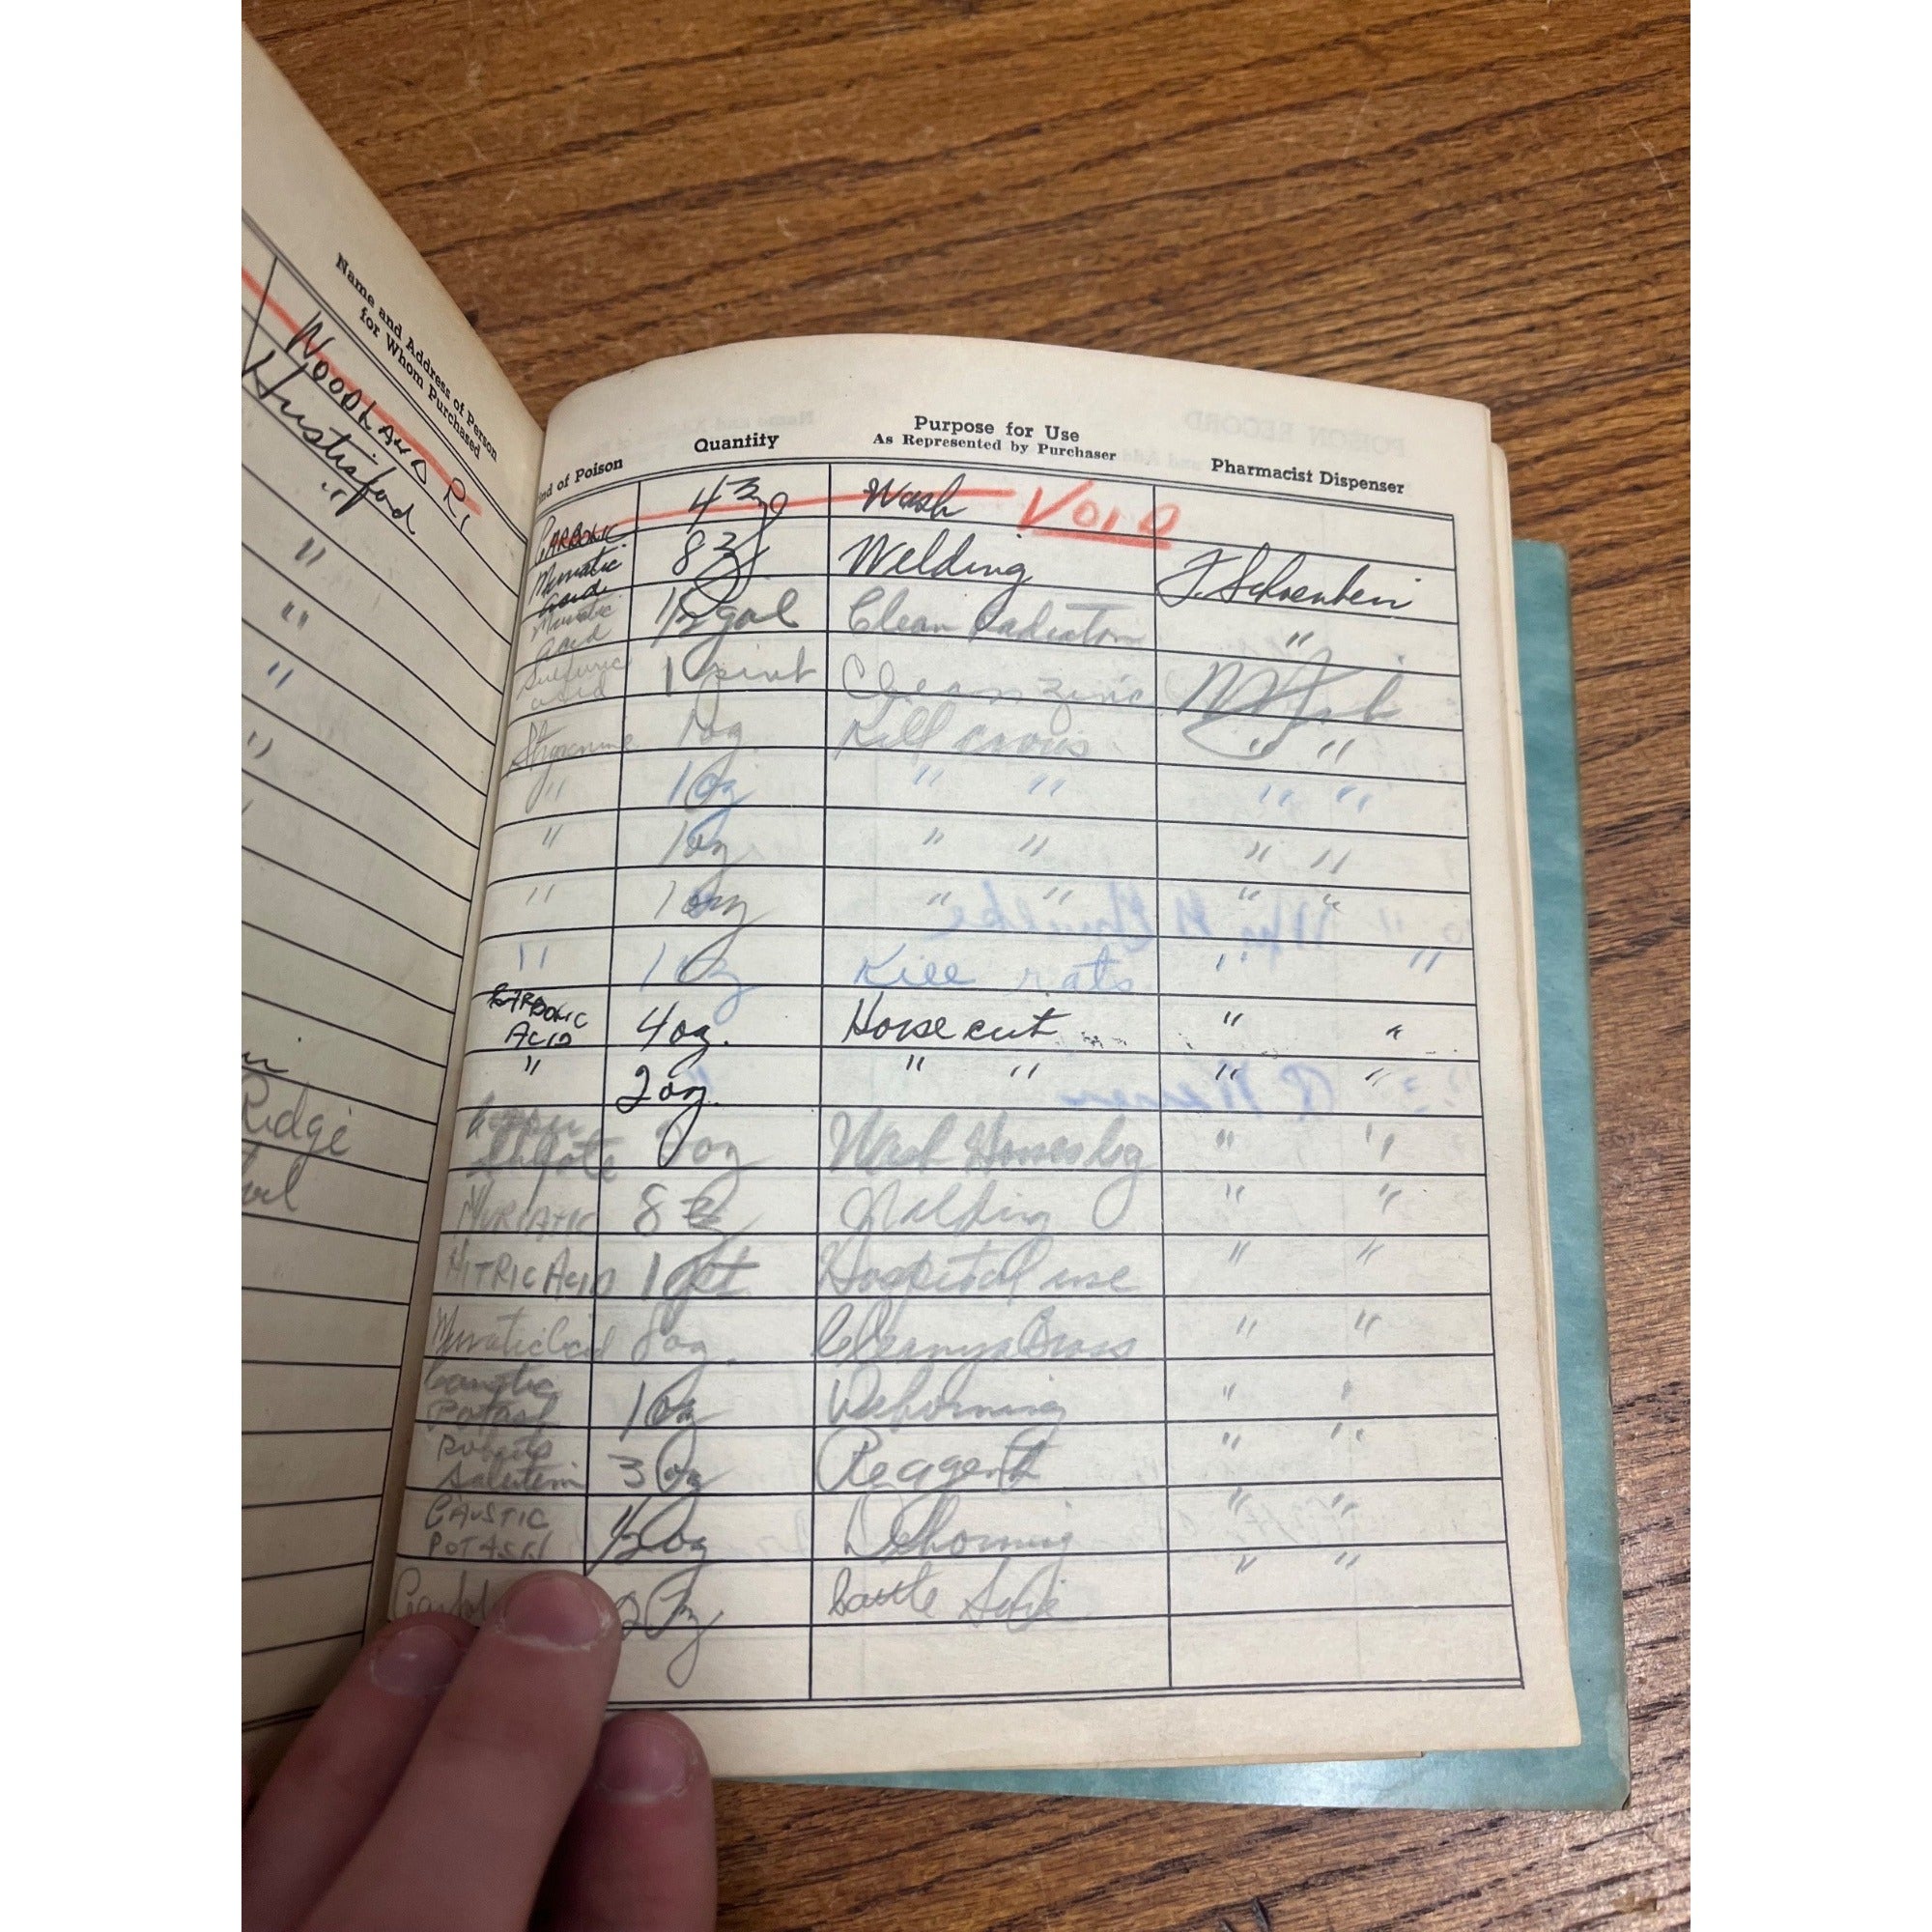 Name and Address of Person
for Whom Purchased
WOODLAND RI
Hustisford
"
"
"
"
"
Ridge
Kind of Poison Quantity Purpose for Use
As Represented by Purchaser Pharmacist Dispenser
CARBOLIC 4 ℥ Wash VOID
Muriatic Acid 8 ℥ Welding J. Schoenbein
Muriatic Acid 1/2 gal Clean Radiator "
Sulfuric acid 1 pint Clean zinc
Strychnine 1 oz. Kill crows " "
" 1 oz " " " "
" 1 oz " " " "
" 1 oz " " " "
" 1 oz Kill rats " "
CARBOLIC ACID 4 oz. Horse cut " "
" 2 oz. " " " "
oz Wash Horses leg " "
MURIATIC 8 ℥ Welding " "
NITRIC ACID 1 pt Hospital use " "
Muriatic Acid 8 oz. Cleaning Brass " "
Caustic Potash 1 oz Dehorning " "
3 oz Reagent " "
CAUSTIC POTASH 1/2 oz Dehorning " "
2 oz Cattle " "